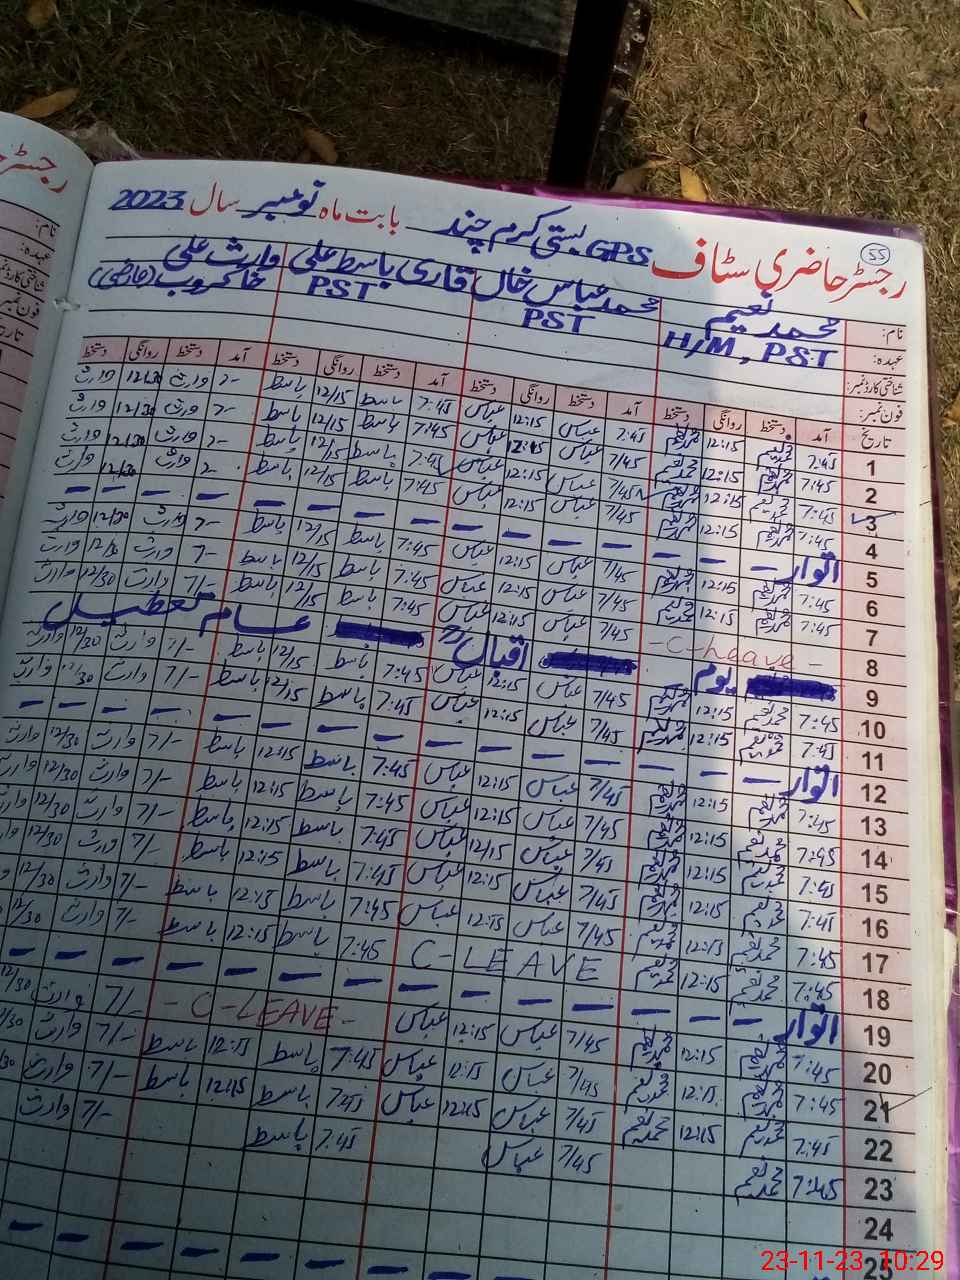 رجسٹر حاضری سٹاف GPS بستی کرم چند بابت ماہ نومبر سال 2023
55
نام: محمد نعیم محمد عباس خاں قاری باسط علی وارث علی
عہدہ: H/M, PST PST PST خاکروب (عارضی)
شناختی کارڈ نمبر:
فون نمبر:
تاریخ آمد دستخط روانگی دستخط آمد دستخط روانگی دستخط آمد دستخط روانگی دستخط آمد دستخط روانگی دستخط
1 7:45 محمد نعیم 12:15 محمد نعیم 7:45 عباس 12:15 عباس 7:45 باسط 12/15 باسط 7/- وارث 12/30 وارث
2 7:45 محمد نعیم 12:15 محمد نعیم 7/45 عباس 12:15 عباس 7:45 باسط 12/15 باسط 7/- وارث 12/30 وارث
3 7:45 محمد نعیم 12:15 محمد نعیم 7/45 عباس 12:15 عباس 7:45 باسط 12/15 باسط 7/- وارث 12/30 وارث
4 7:45 محمد نعیم 12:15 محمد نعیم 7/45 عباس 12:15 عباس 7:45 باسط 12/15 باسط 7/- وارث 12/30 وارث
5 اتوار
6 7:45 محمد نعیم 12:15 محمد نعیم 7/45 عباس 12:15 عباس 7:45 باسط 12/15 باسط 7/- وارث 12/30 وارث
7 7:45 محمد نعیم 12:15 محمد نعیم 7/45 عباس 12:15 عباس 7:45 باسط 12/15 باسط 7/- وارث 12/30 وارث
8 - C-Leave - 7/45 عباس 12:15 عباس 7:45 باسط 12/15 باسط 7/- وارث 12/30 وارث
9 یوم اقبال عام تعطیل
10 7:45 محمد نعیم 12:15 محمد نعیم 7/45 عباس 12:15 عباس 7:45 باسط 12/15 باسط 7/- وارث 12/30 وارث
11 7:45 محمد نعیم 12:15 محمد نعیم 7/45 عباس 12:15 عباس 7:45 باسط 12/15 باسط 7/- وارث 12/30 وارث
12 اتوار
13 7:45 محمد نعیم 12:15 محمد نعیم 7/45 عباس 12:15 عباس 7:45 باسط 12:15 باسط 7/- وارث 12/30 وارث
14 7:45 محمد نعیم 12:15 محمد نعیم 7/45 عباس 12:15 عباس 7:45 باسط 12:15 باسط 7/- وارث 12/30
15 7:45 محمد نعیم 12:15 محمد نعیم 7/45 عباس 12/15 عباس 7:45 باسط 12:15 باسط 7/- وارث 12/30
16 7:45 محمد نعیم 12:15 محمد نعیم 7/45 عباس 12:15 عباس 7:45 باسط 12:15 باسط 7/- وارث 12/30
17 7:45 محمد نعیم 12:15 محمد نعیم 7/45 عباس 12:15 عباس 7:45 باسط 12:15 باسط 7/- وارث 12/30
18 7:45 محمد نعیم 12:15 محمد نعیم C-LEAVE 7:45 باسط 12:15 باسط 7/- وارث 12/30
19 اتوار
20 7:45 محمد نعیم 12:15 محمد نعیم 7/45 عباس 12:15 عباس - C-LEAVE - 7/- وارث 12/30
21 7:45 محمد نعیم 12:15 محمد نعیم 7/45 عباس 12:15 عباس 7:45 باسط 12:15 باسط 7/- وارث
22 7:45 محمد نعیم 12:15 محمد نعیم 7/45 عباس 12:15 عباس 7:45 باسط 12:15 باسط 7/- وارث
23 7:45 محمد نعیم 7/45 عباس 7:45 باسط 7/- وارث
24
25
23-11-23 10:29